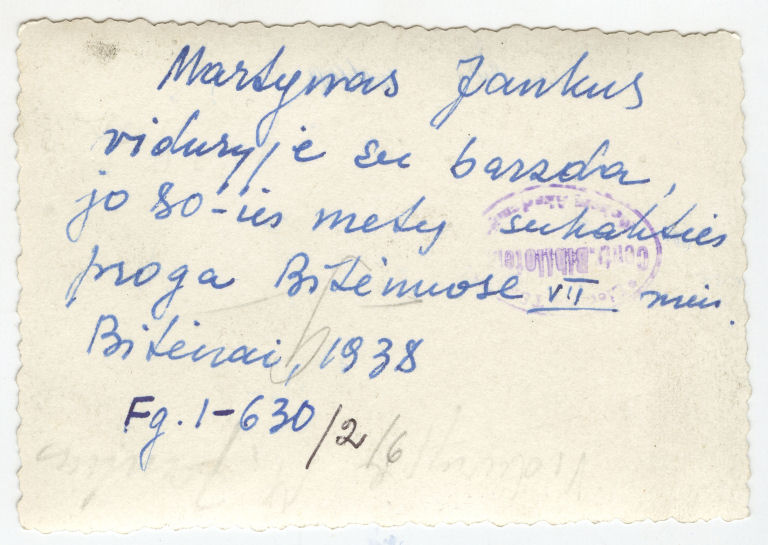 Martynas Jankus
viduryje su barzda,
jo 80-ies metų sukakties
proga Bitėnuose VII mėn.
Bitėnai, 1938
Fg. 1-630/2/6
Centr. Bibliotek